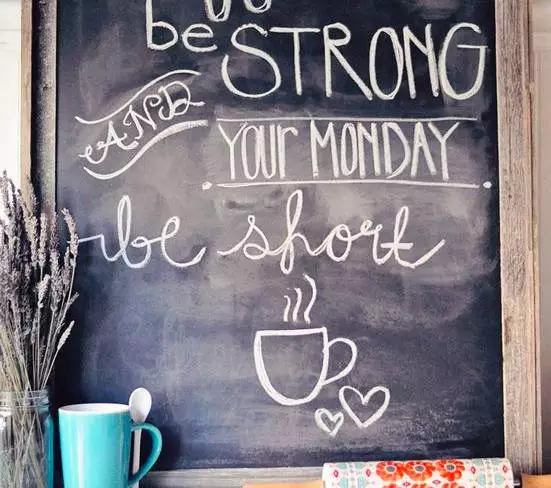 be STRONG
AND
YOUR MONDAY
be short